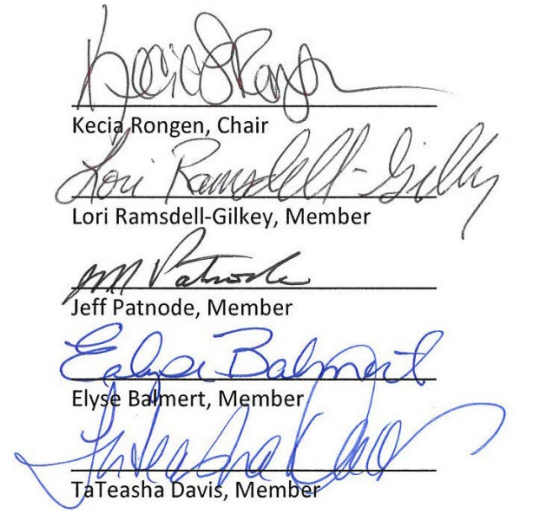 Kecia Rongen
Kecia Rongen, Chair
Lori Ramsdell-Gilkey
Lori Ramsdell-Gilkey, Member
Patnode
Jeff Patnode, Member
Elyse Balmert
Elyse Balmert, Member
TaTeasha Davis
TaTeasha Davis, Member